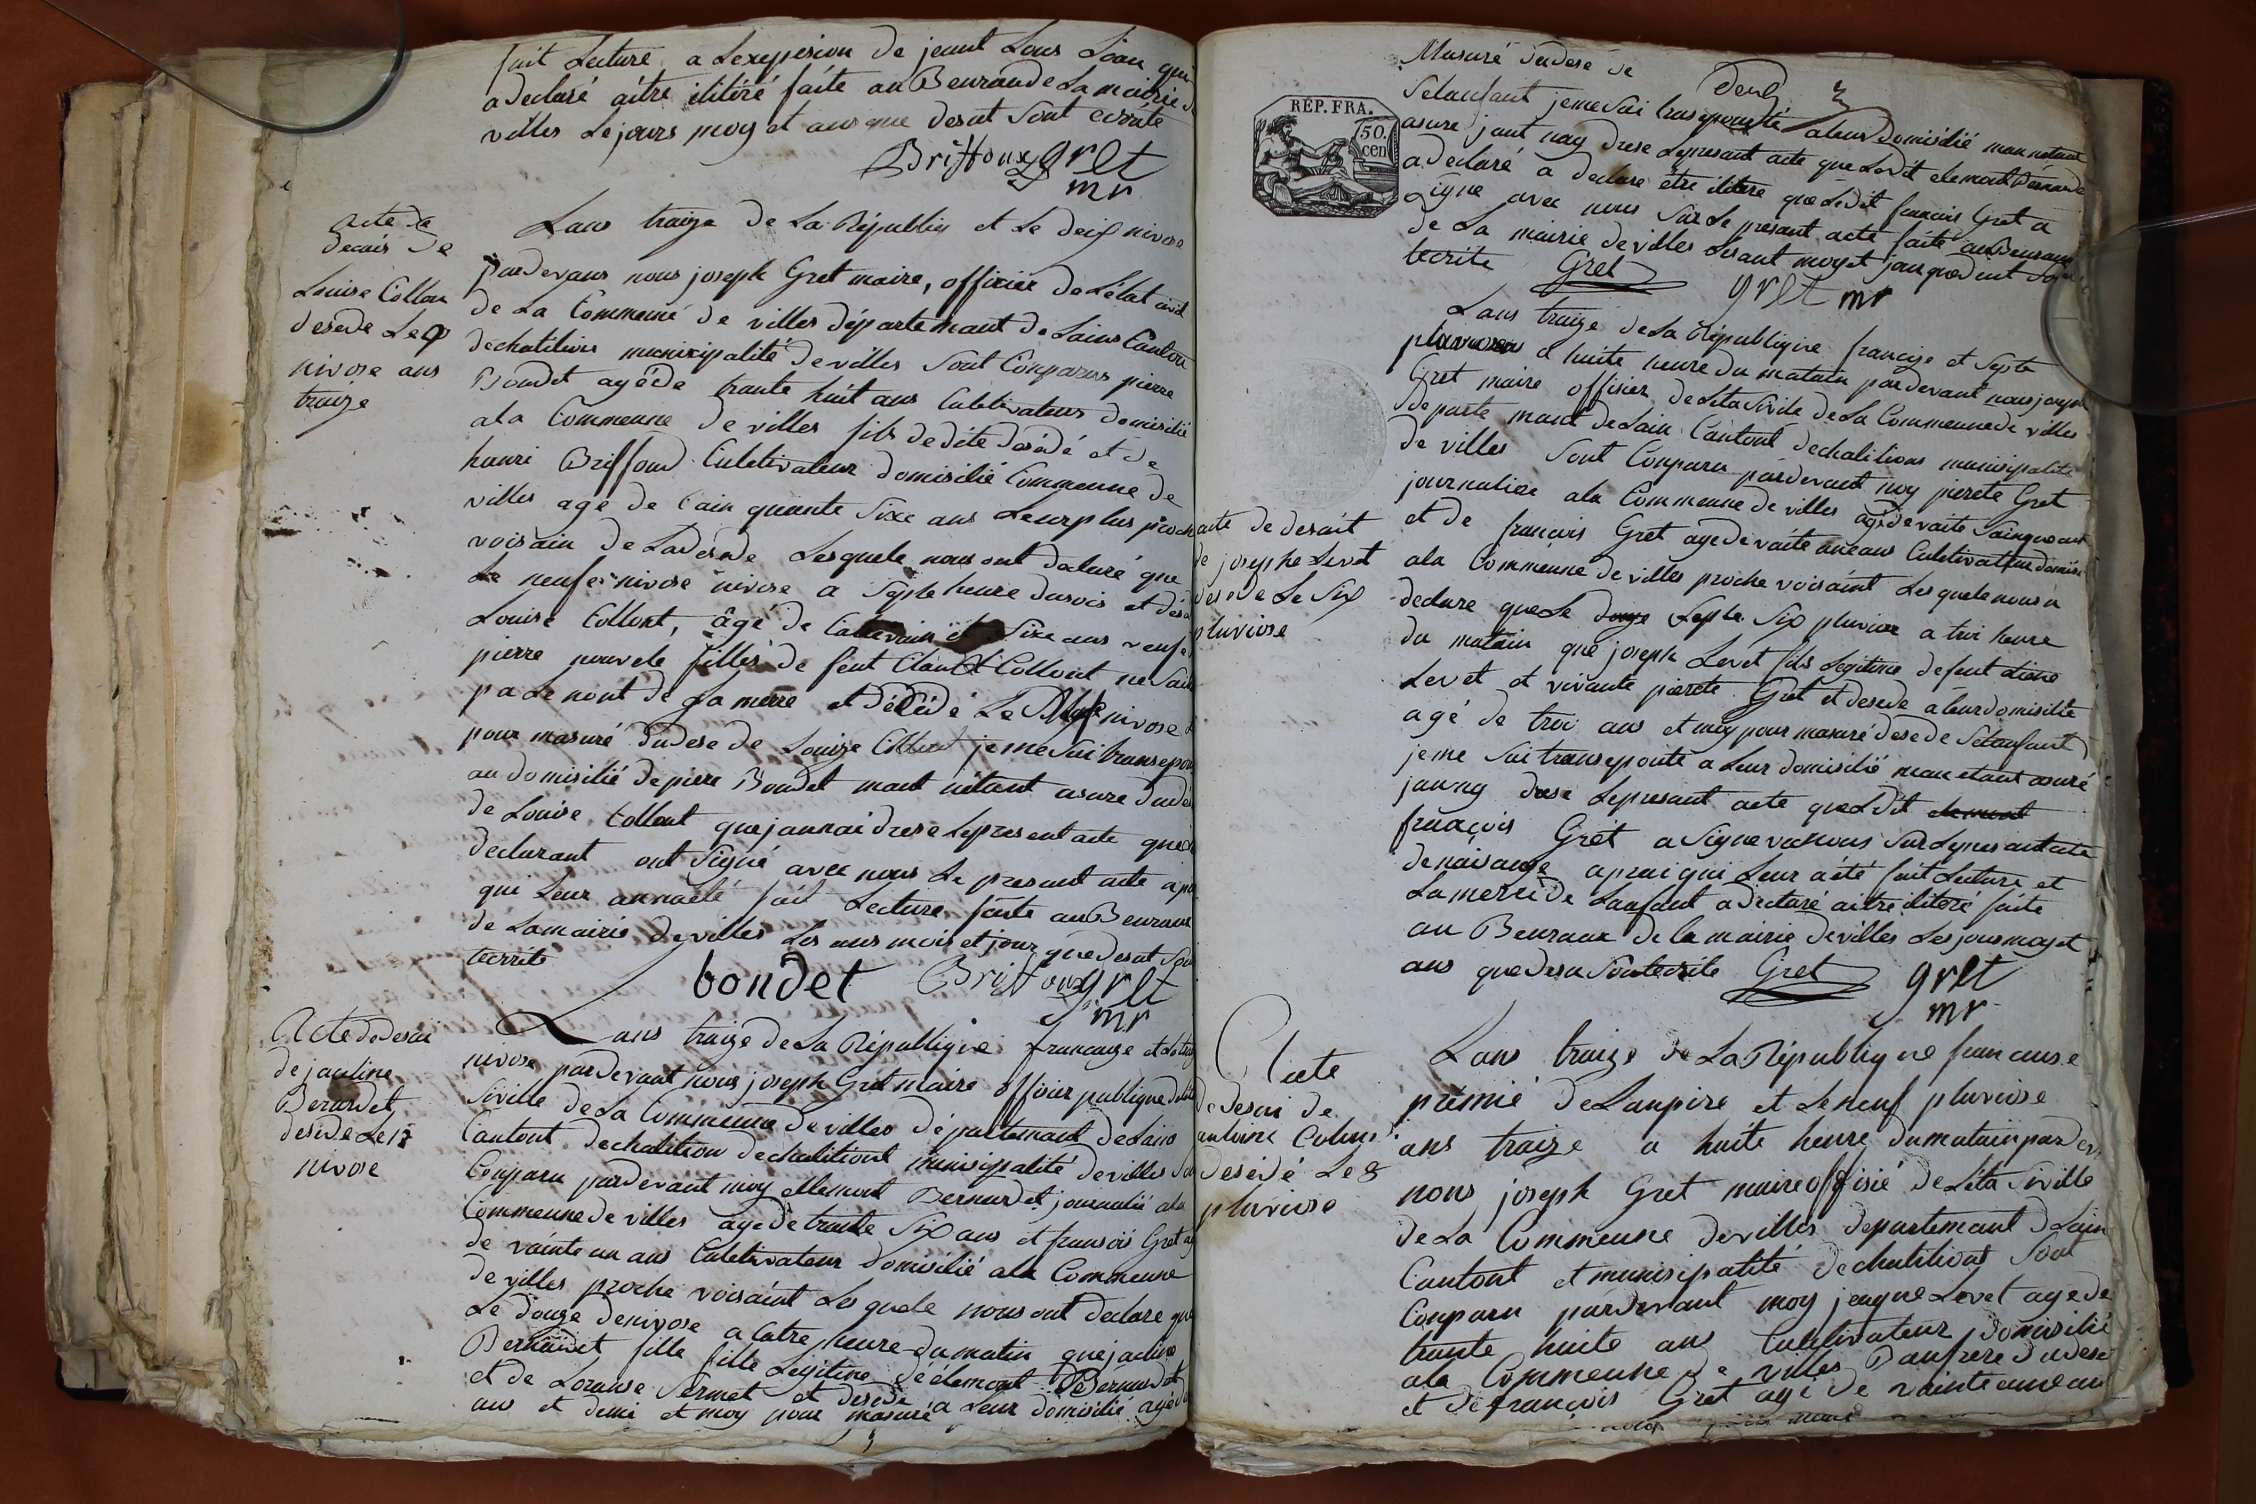 fait Lecture a Lexsepsiion de jeant Lous Lion qui
a declaré aitre ilitéré faite au Beuraude La mairie de
villes Le jours moy et ans que desut Sont ecrité
Briffoux gret
mr
acte de
decais de
Louise Collon
desede Le 9
nivose ans
traize
Lans traize de La Républiq et Le deix nivose
pardevans nous joseph Gret maire, officier de Létat civil
de La Commeune de villes département de Lains Canton
dechatilions municipalité de villes Sont Comparus pierre
Boudet agéé de trante huit ans Culetivateurs domisilié
ala Commeune de villes fils de dite desédé et de
henri Briffoud Culetivateur domisilié Commeune de
villes age de Cain quante Sixe ans Leurplus proch
voisain de Ladesede Lesquele nous ont declaré que
Le neufe nivose nivose a Septe heure dusois et désé
Louise Collont, âgé de et Sixe ans veufe
pierre nouvele filles de feut Claud Collont ne Sait
pa Le nont de Sa mere et décédé Le nivose
pour masuré dudese de Louize Collont je me Sui transepor
au domisilié de pierre Boudet mant nétant asure dudes
de Louise Collont quejannai drese Lepresent acte que
declarant ont Signé avec nous Le present acte apr
qui Leur annaété fait Lecture faite au Beuraux
de Lamairie de villes Les ans mois et jour que desut Son
tecrite
boudet Briffoux gret
mr
Acte de desai
de jacline
Berardet
desede Le 12
nivose
Lans traize de La République francaize et Le traiz
nivose pardevant nous joseph Gret maire officier publique de Léta
Siville de La Commeune de villes département de Lains
Cantont dechatilion dechatiliont munisipalité de villes Son
Comparu pardevant moy ellemont Bernardet journalié ala
Commeune de villes age de trante Six ans et fransois Gret ag
de vainte un ans Culetivateur domisilié ala Commeune
de villes proche voisaint Les quele nous ont declare que
Le douze denivose a Catre heure dumatin que jacline
Bernardet fille fille Legitime de élemont Bernardet
et de Loranse Sermet et desede a Leur domisilié agé de
ans et demi et moy pour masuré
Masuré dudese de deuf
Setanfant jeme Sui transeporté aleur domisilié mannétant
asure jant nay drese Lepresant acte que Ledit elemont Bernarde
a declaré a declare être ilitere que Ledit francois Gret a
Signe avec nous Sur Le presant acté faite au Beuraux
de La mairie de villes Lesant moy et jour que dut Son
tecrite Gret gret mr
RÉP. FRA.
50.
cen
Lans traize de La République francize et Septe
pluviose a huite heure du matain pardevant nous joseph
Gret maire offisier de Léta Sivile de La Commeune de villes
departe mant de Lain Cantont dechatilions munisipalité
de villes Sont Conparu pardevant moy pierete Gret
journaliere ala Commeune de villes agé de vaite Sainqueans
et de francois Gret age de vaite une ans Culetivateur domisi
ala Commeune de villes proche voisaint Les quele nous a
declare que Le Six pluviose a troi heure
du matain que joseph Levet fils Legitime de feut
Levet et vivante pierete Gret et desede aleur domisilié
agé de troi ans et moy pour masuré desede Setanfant
jeme Sui transeporité a Leur domisilié mane etant asuré
jannay drese Lepresant acte que Ledit elemont
françois Gret a Signe vat nous Sur Lepres ant acte
de naisange aprai qui Leur a été fait Lecture et
La mere de Lanfant a declaré aitre ilitéré faite
au Beuraux de la mairie de villes Lesjours moy et
ans que desu Sontecrite Gret gret
mr
acte de desait
de josephe Levet
desede Le Six
pluviose
Acte
de desai de
antoine Colins
desédé Le 8
pluviose
Lans traize de La République francause
premié de Lanpire et Le neuf pluviose
ans traize a huite heure dumatain pardev
nous joseph Gret maire offisié de Léta Siville
de La Commeune de villes departemant de Lain
Cantont et munisipalité dechatilions Sont
Conparu pardevant moy jaque Levet age de
trante huite ans Culetivateur domisilié
ala Commeune de villes Baufrere dudese
et de françois Gret agé de vainte une an